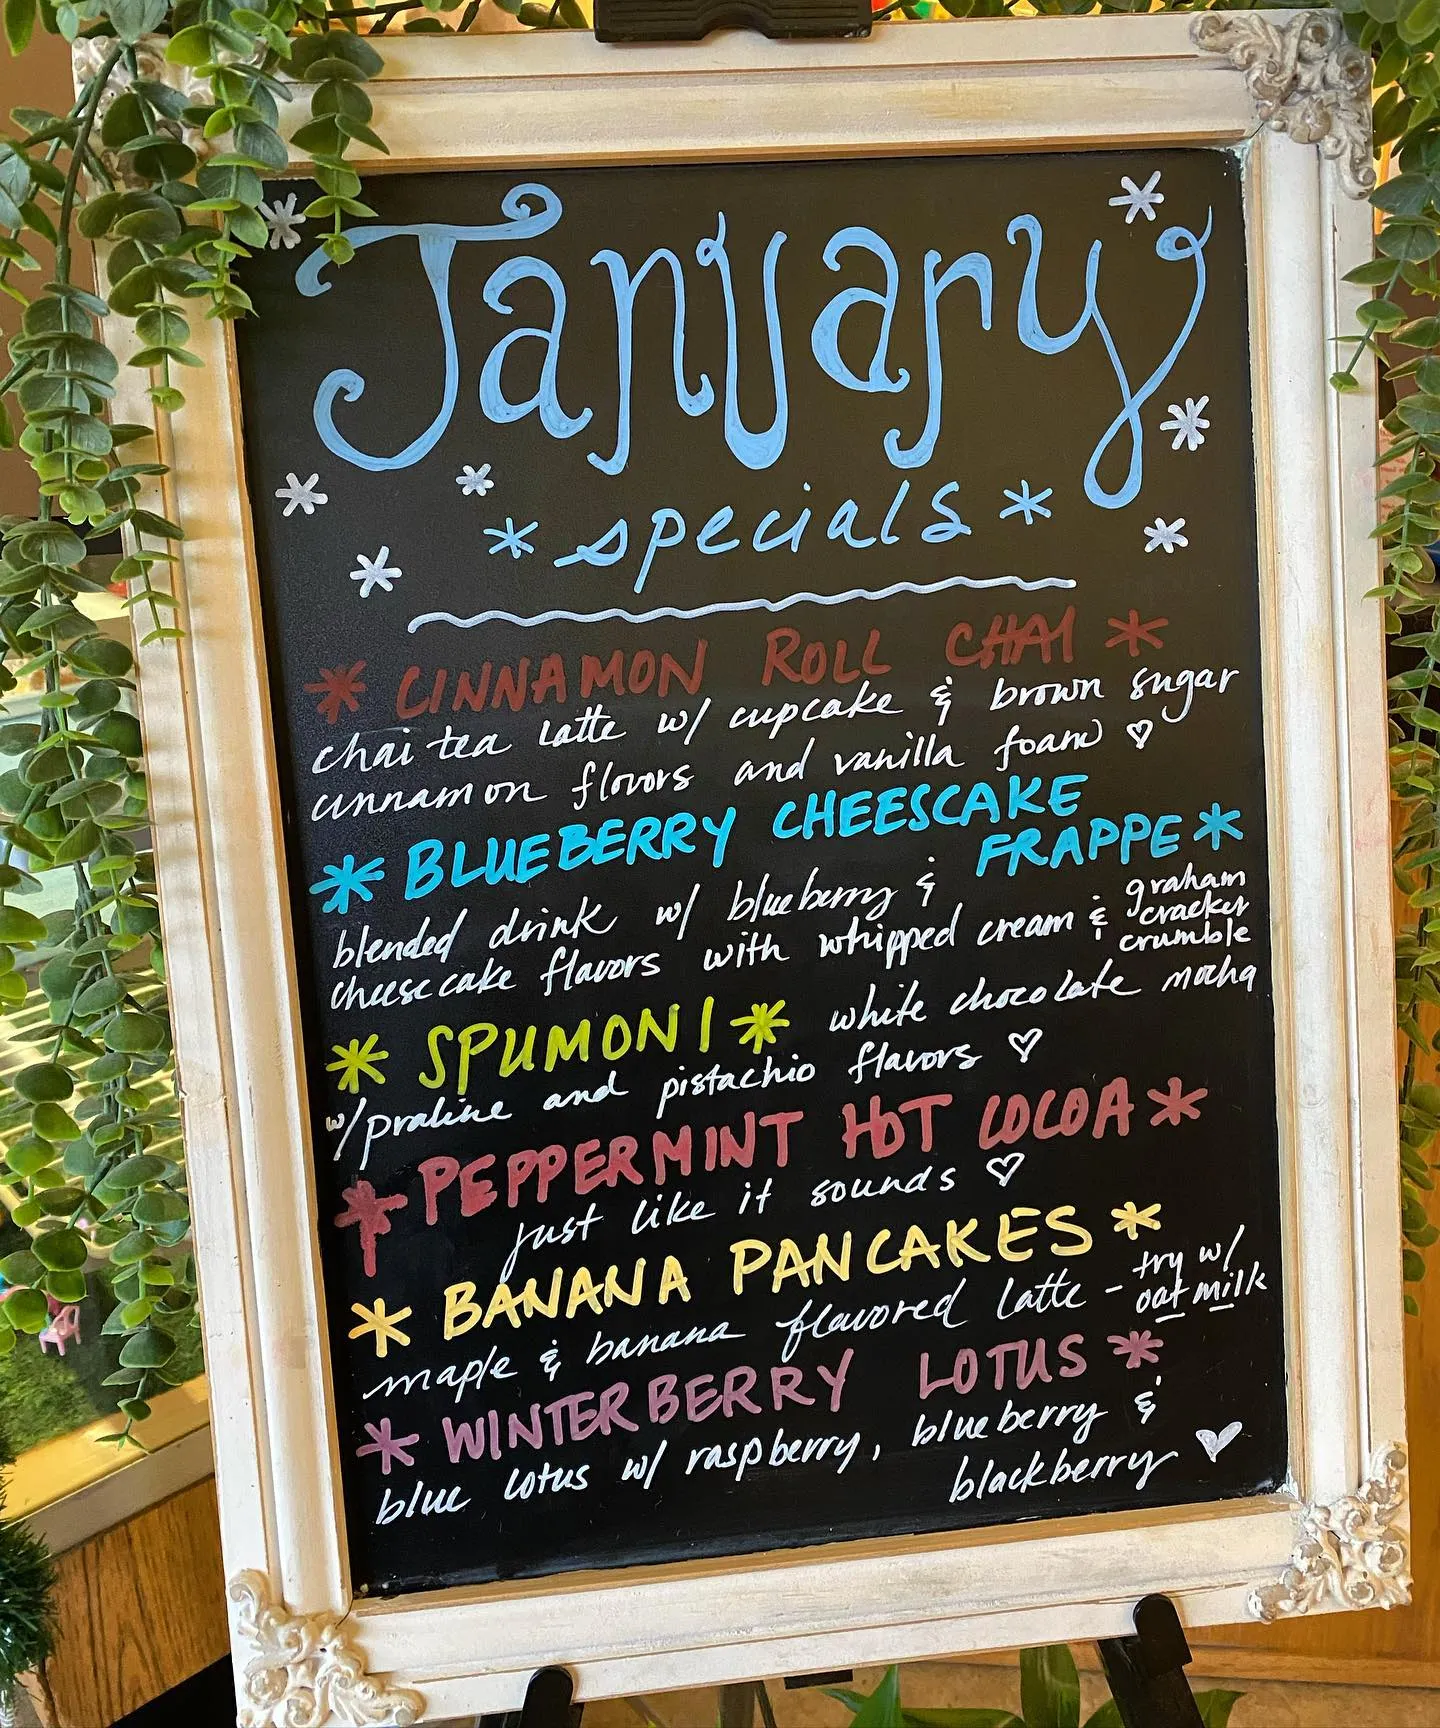 January
*specials*
* CINNAMON ROLL CHAI *
chai tea latte w/ cupcake & brown sugar
cinnamon flovors and vanilla foam ♡
* BLUEBERRY CHEESCAKE
FRAPPE *
blended drink w/ blueberry &
cheesecake flavors with whipped cream & graham
cracker
crumble
* SPUMONI * white chocolate mocha
w/ praline and pistachio flavors ♡
* PEPPERMINT HOT COCOA *
just like it sounds ♡
* BANANA PANCAKES *
maple & banana flavored latte - try w/
oat milk
* WINTERBERRY LOTUS *
blue lotus w/ raspberry, blueberry &
blackberry ♡